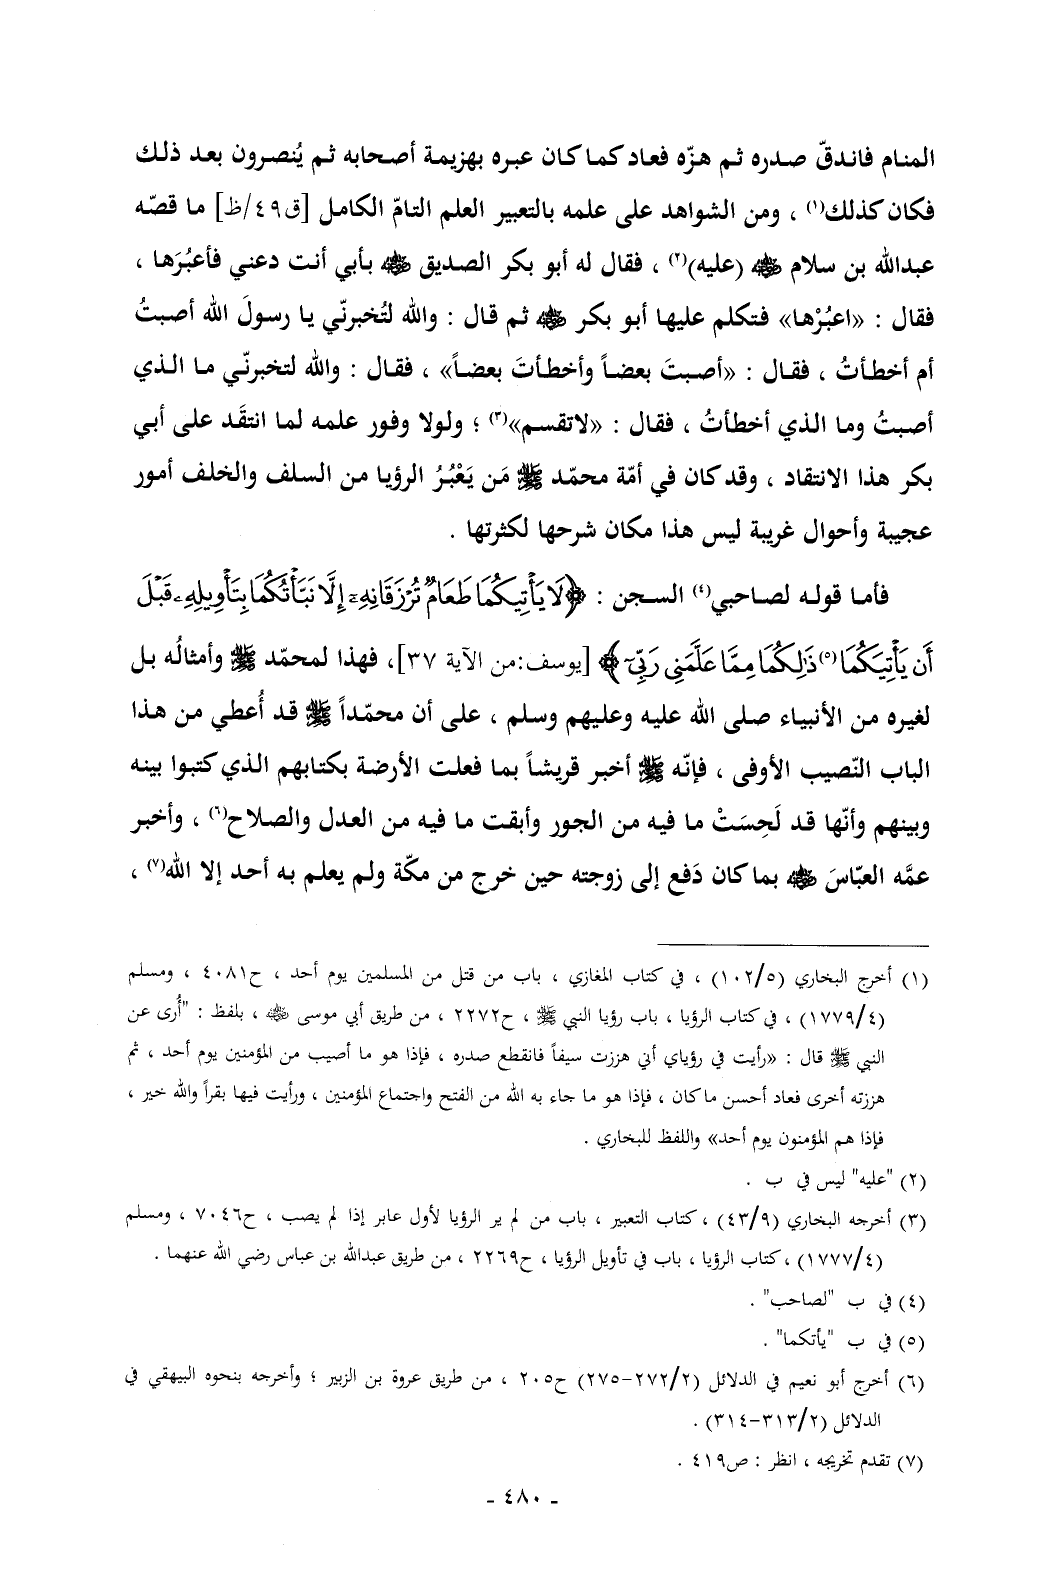 المنام فاندقّ صدره ثم هزّه فعاد كما كان عبره بهزيمة أصحابه ثم يُنصرون بعد ذلك
فكان كذلك(١) ، ومن الشواهد على علمه بالتعبير العلم التامّ الكامل [ق٤٩/ظ] ما قصّه
عبدالله بن سلام ﷺ (عليه)(٢) ، فقال له أبو بكر الصديق ﷺ بأبي أنت دعني فأعبُرَها ،
فقال : «اعبُرْها» فتكلم عليها أبو بكر ﷺ ثم قال : والله لتُخبرنّي يا رسولَ الله أصبتُ
أم أخطأتُ ، فقال : «أصبتَ بعضاً وأخطأتَ بعضاً» ، فقال : والله لتخبرنّي ما الذي
أصبتُ وما الذي أخطأتُ ، فقال : «لاتقسم»(٣) ؛ ولولا وفور علمه لما انتقَد على أبي
بكر هذا الانتقاد ، وقد كان في أمّة محمّد ﷺ مَن يَعْبُرُ الرؤيا من السلف والخلف أمور
عجيبة وأحوال غريبة ليس هذا مكان شرحها لكثرتها .
فأما قوله لصاحبي(٤) السجن : ﴿لَا يَأْتِيكُمَا طَعَامٌ تُرْزَقَانِهِۦٓ إِلَّا نَبَّأْتُكُمَا بِتَأْوِيلِهِۦ قَبْلَ
أَن يَأْتِيَكُمَا(٥) ذَٰلِكُمَا مِمَّا عَلَّمَنِي رَبِّيٓ﴾ [يوسف:من الآية ٣٧]، فهذا لمحمّد ﷺ وأمثالُه بل
لغيره من الأنبياء صلى الله عليه وعليهم وسلم ، على أن محمّداً ﷺ قد أُعطي من هذا
الباب النّصيب الأوفى ، فإنّه ﷺ أخبر قريشاً بما فعلت الأرضة بكتابهم الذي كتبوا بينه
وبينهم وأنّها قد لَحِسَتْ ما فيه من الجور وأبقت ما فيه من العدل والصلاح(٦) ، وأخبر
عمَّه العبّاسَ ﷺ بما كان دَفع إلى زوجته حين خرج من مكّة ولم يعلم به أحد إلا الله(٧) ،
(١) أخرج البخاري (١٠٢/٥) ، في كتاب المغازي ، باب من قتل من المسلمين يوم أحد ، ح٤٠٨١ ، ومسلم
(١٧٧٩/٤) ، في كتاب الرؤيا ، باب رؤيا النبي ﷺ ، ح٢٢٧٢ ، من طريق أبي موسى ﷺ ، بلفظ : "أُرى عن
النبي ﷺ قال : «رأيت في رؤياي أني هززت سيفاً فانقطع صدره ، فإذا هو ما أصيب من المؤمنين يوم أحد ، ثم
هززته أخرى فعاد أحسن ما كان ، فإذا هو ما جاء به الله من الفتح واجتماع المؤمنين ، ورأيت فيها بقراً والله خير ،
فإذا هم المؤمنون يوم أحد» واللفظ للبخاري .
(٢) "عليه" ليس في ب .
(٣) أخرجه البخاري (٤٣/٩) ، كتاب التعبير ، باب من لم ير الرؤيا لأول عابر إذا لم يصب ، ح٧٠٤٦ ، ومسلم
(١٧٧٧/٤) ، كتاب الرؤيا ، باب في تأويل الرؤيا ، ح٢٢٦٩ ، من طريق عبدالله بن عباس رضي الله عنهما .
(٤) في ب "لصاحب" .
(٥) في ب "يأتكما" .
(٦) أخرج أبو نعيم في الدلائل (٢٧٢/٢-٢٧٥) ح٢٠٥ ، من طريق عروة بن الزبير ؛ وأخرجه بنحوه البيهقي في
الدلائل (٣١٣/٢-٣١٤) .
(٧) تقدم تخريجه ، انظر : ص٤١٩ .
- ٤٨٠ -